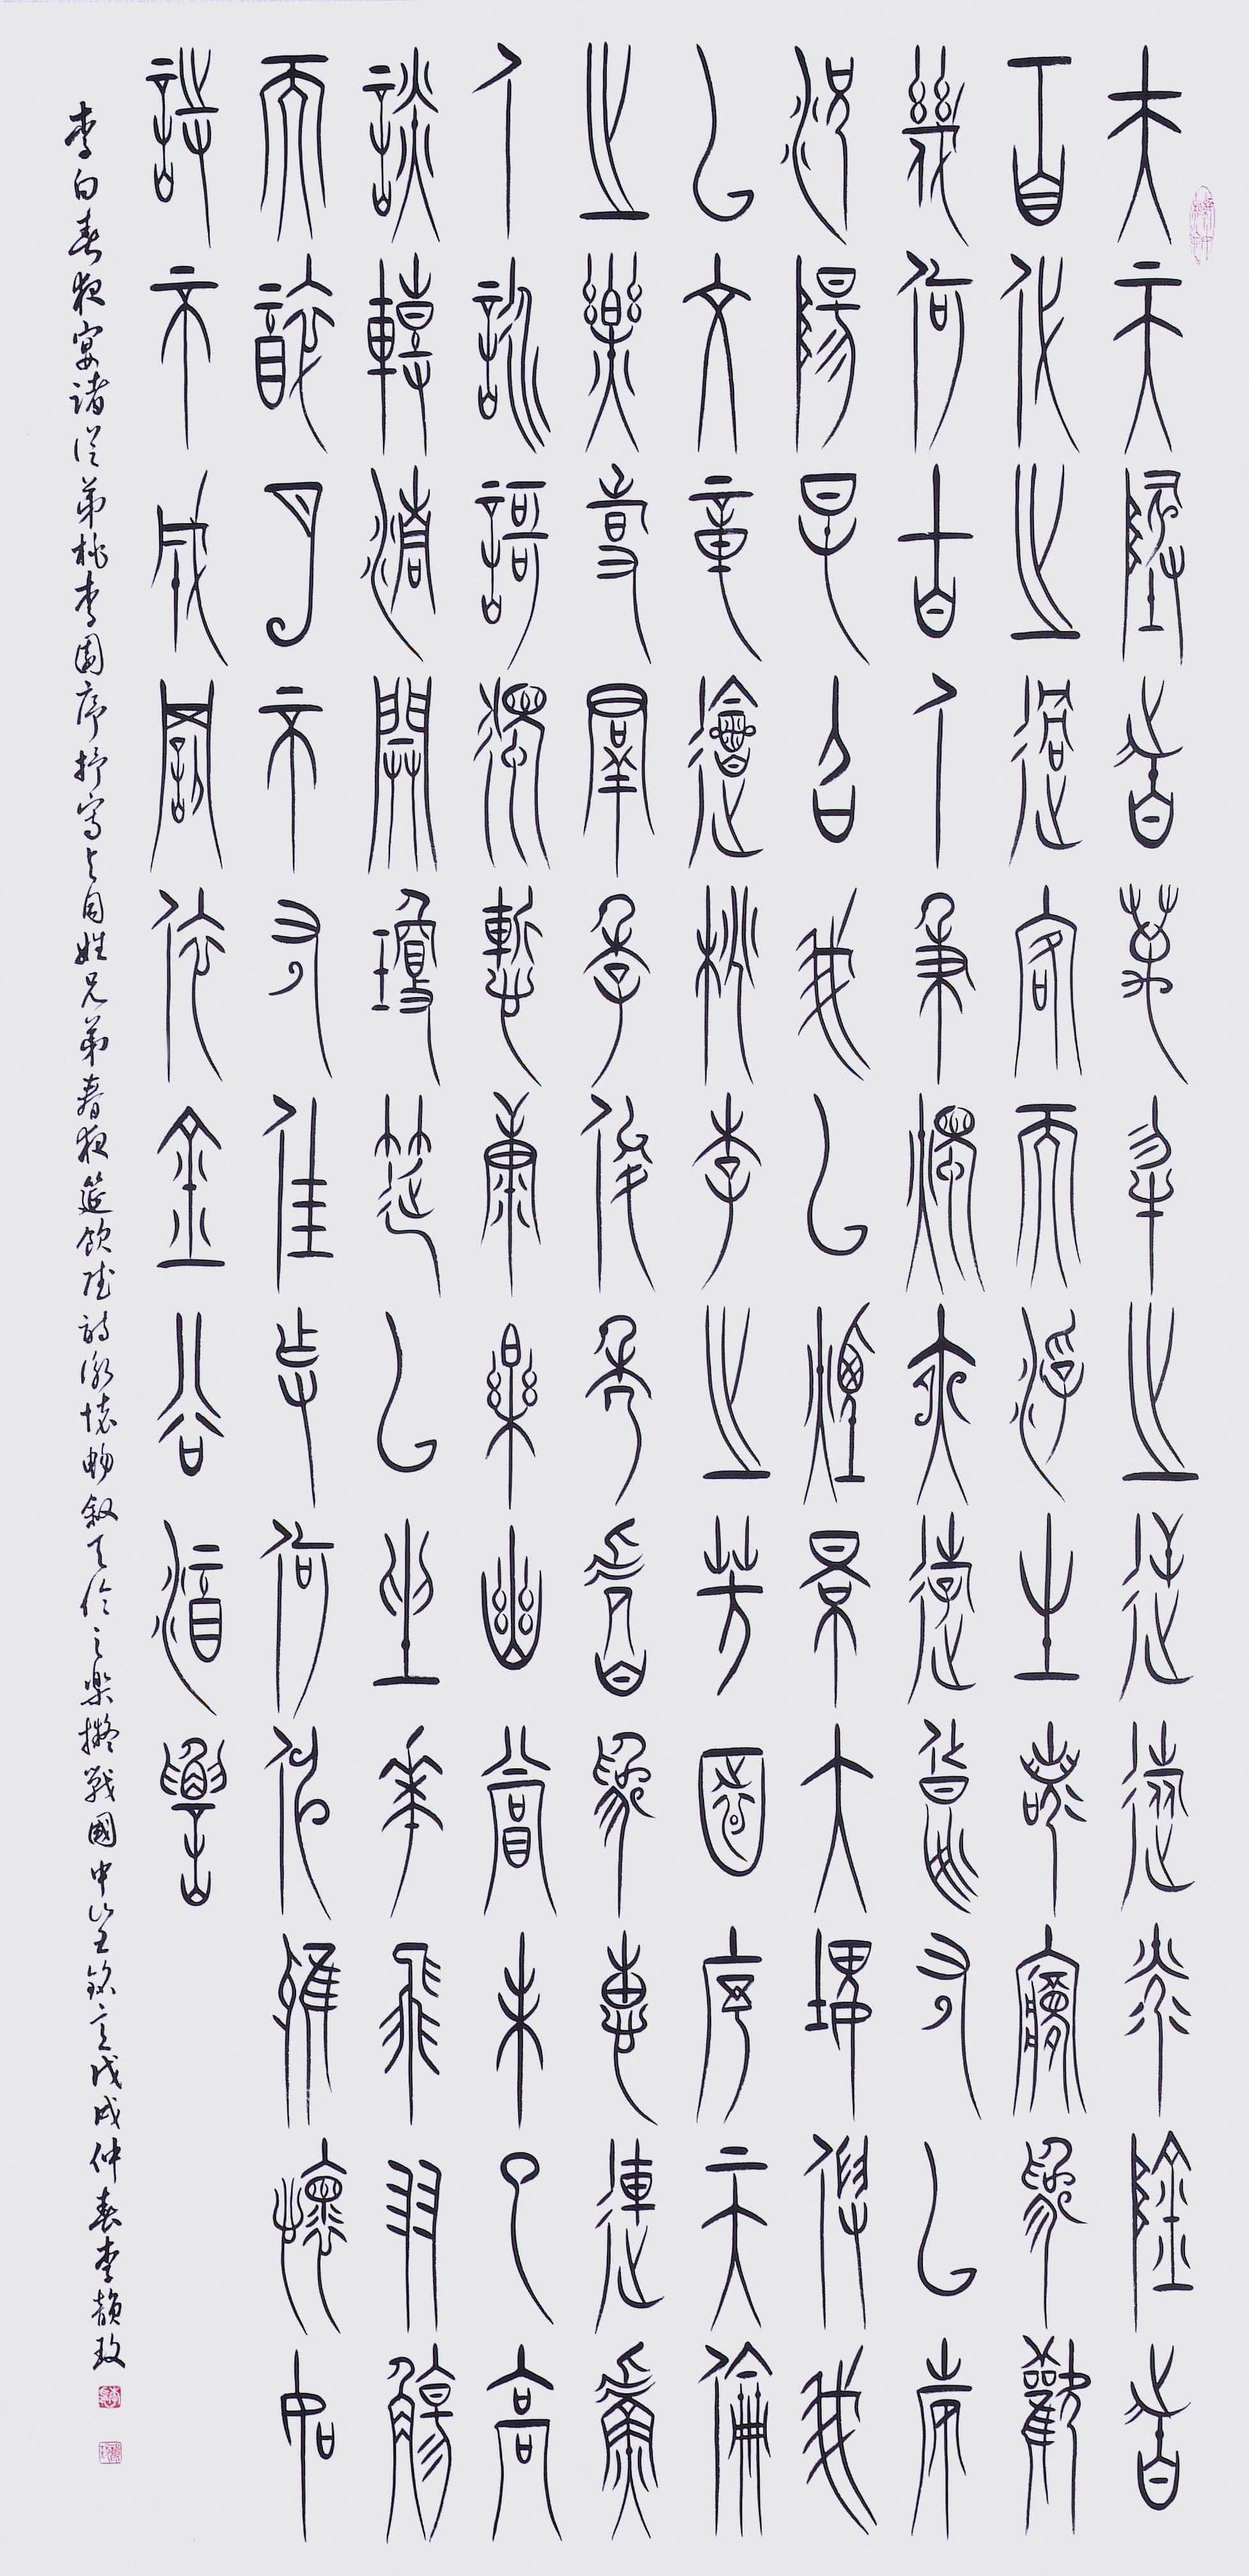 夫天地者萬物之逆旅光陰者
百代之過客而浮生若夢為歡
幾何古人秉燭夜遊良有以也
況陽春召我以煙景大塊假我
以文章會桃李之芳園序天倫
之樂事群季俊秀皆為惠連吾
人詠歌獨慚康樂幽賞未已高
談轉清開瓊筵以坐花飛羽觴
而醉月不有佳作何伸雅懷如
詩不成罰依金谷酒數
李白春夜宴諸從弟桃李園序抒寫與同姓兄弟春夜筵飲賦詩詠懷暢敘天倫之樂擬戰國中山王銘文戊戌仲春李韻玫